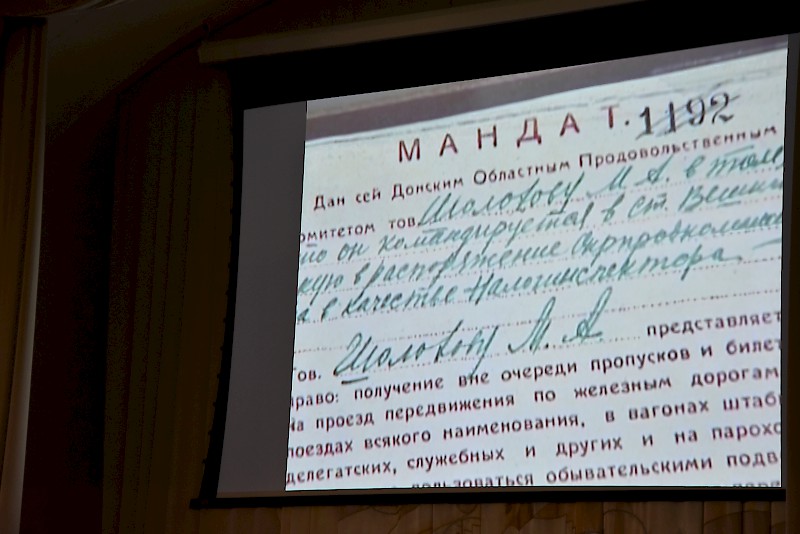 МАНДАТ. 1192
Дан сей Донским Областным Продовольственным
омитетом тов. Шолохову М. А. в том
то он командируется в ст. Вешен
скую в распоряжение Окрпродкомисса
а в качестве Налогинспектора.
ов. Шолохову М. А. представляет
раво: получение вне очереди пропусков и билет
на проезд передвижения по железным дорогам
поездах всякого наименования, в вагонах штаб
делегатских, служебных и других и на парохо
пользоваться обывательскими подв